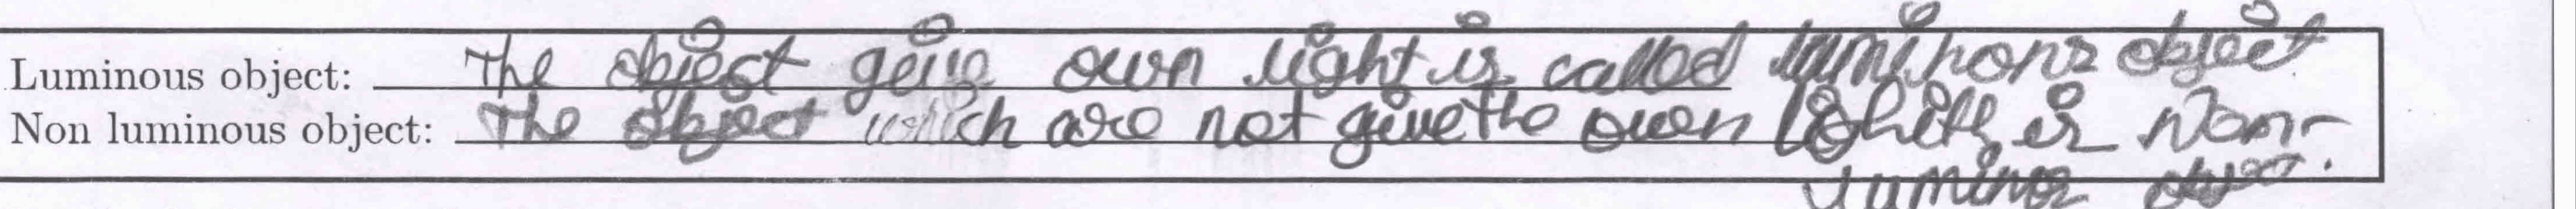 Luminous object: The object give own light is called luminons object
Non luminous object: The object which are not give the own is Non-
luminos